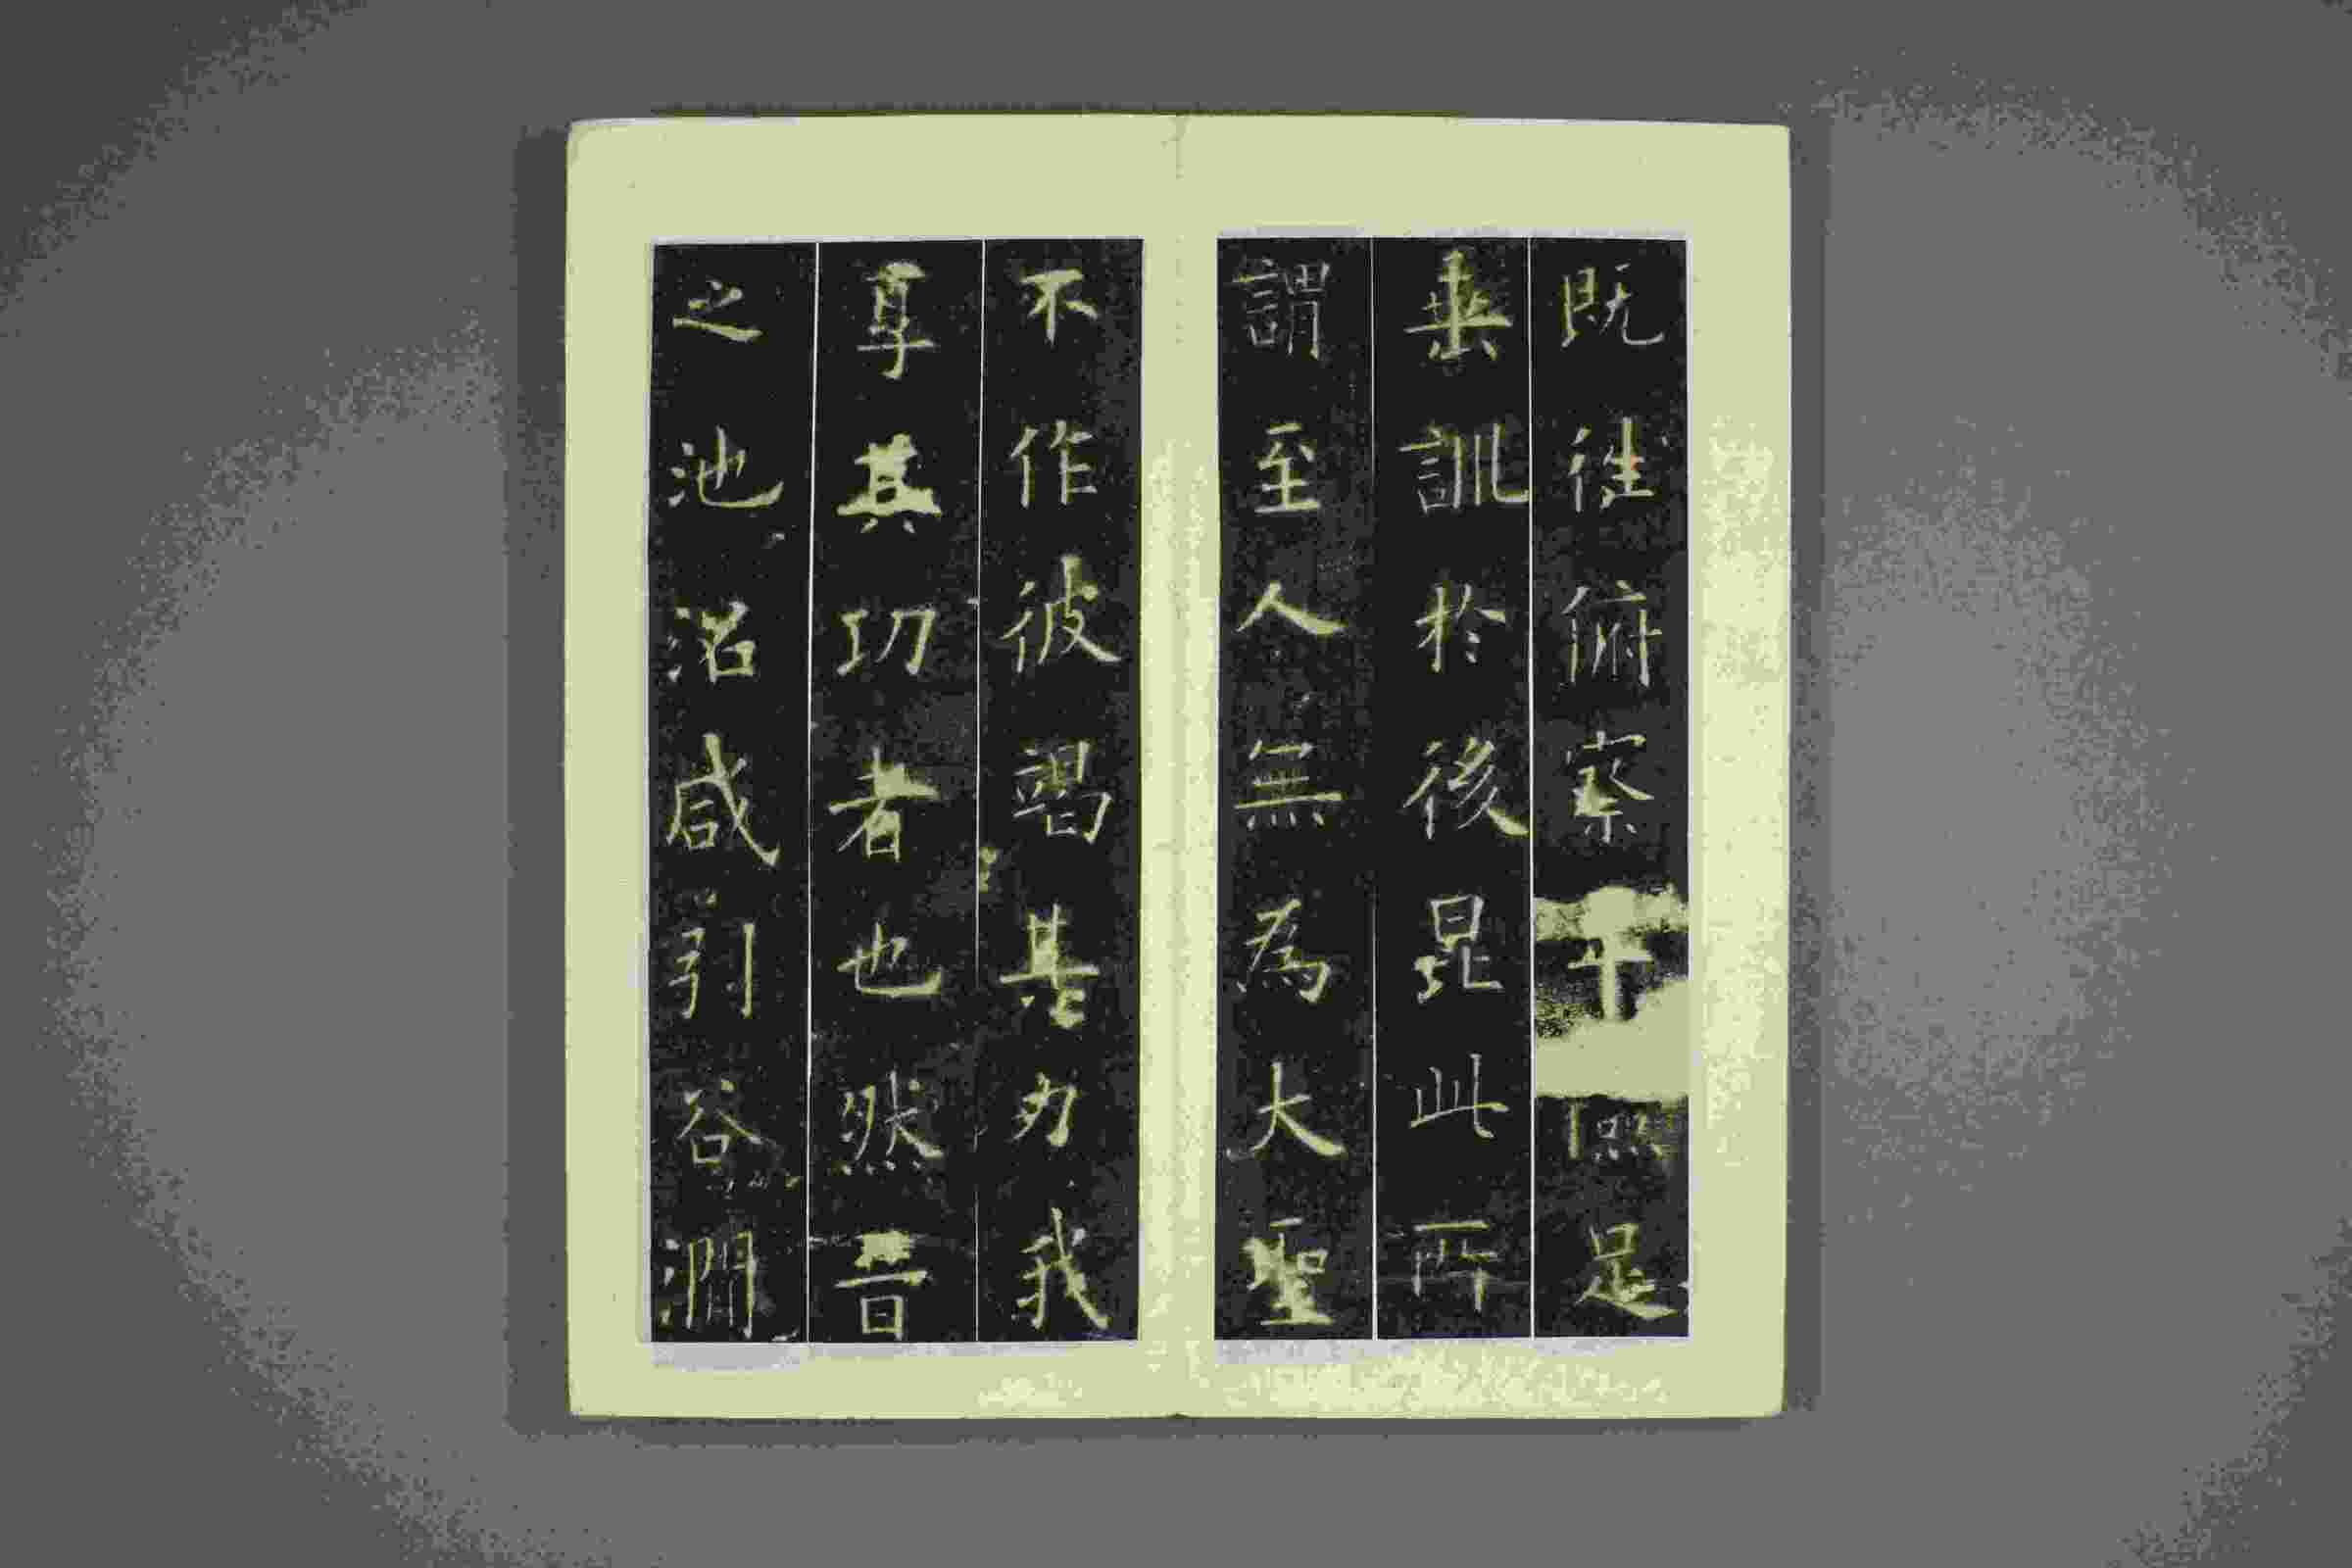 既往俯察足
垂訓於後昆此所
謂至人無為大聖
不作彼竭其力我
享其功者也然昔
之池沼咸引谷澗